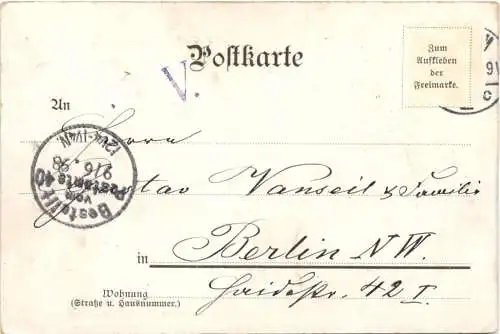 Postkarte
Zum
Aufkleben
der
Freimarke.
9
C
V.
An
Herrn
Gustav Vanseil & Familie
Bestellt
vom
Postamte 40
9/6 98
12¼-1¼N.
in Berlin NW.
Wohnung
(Straße u. Hausnummer.)
Haidestr. 42 I.